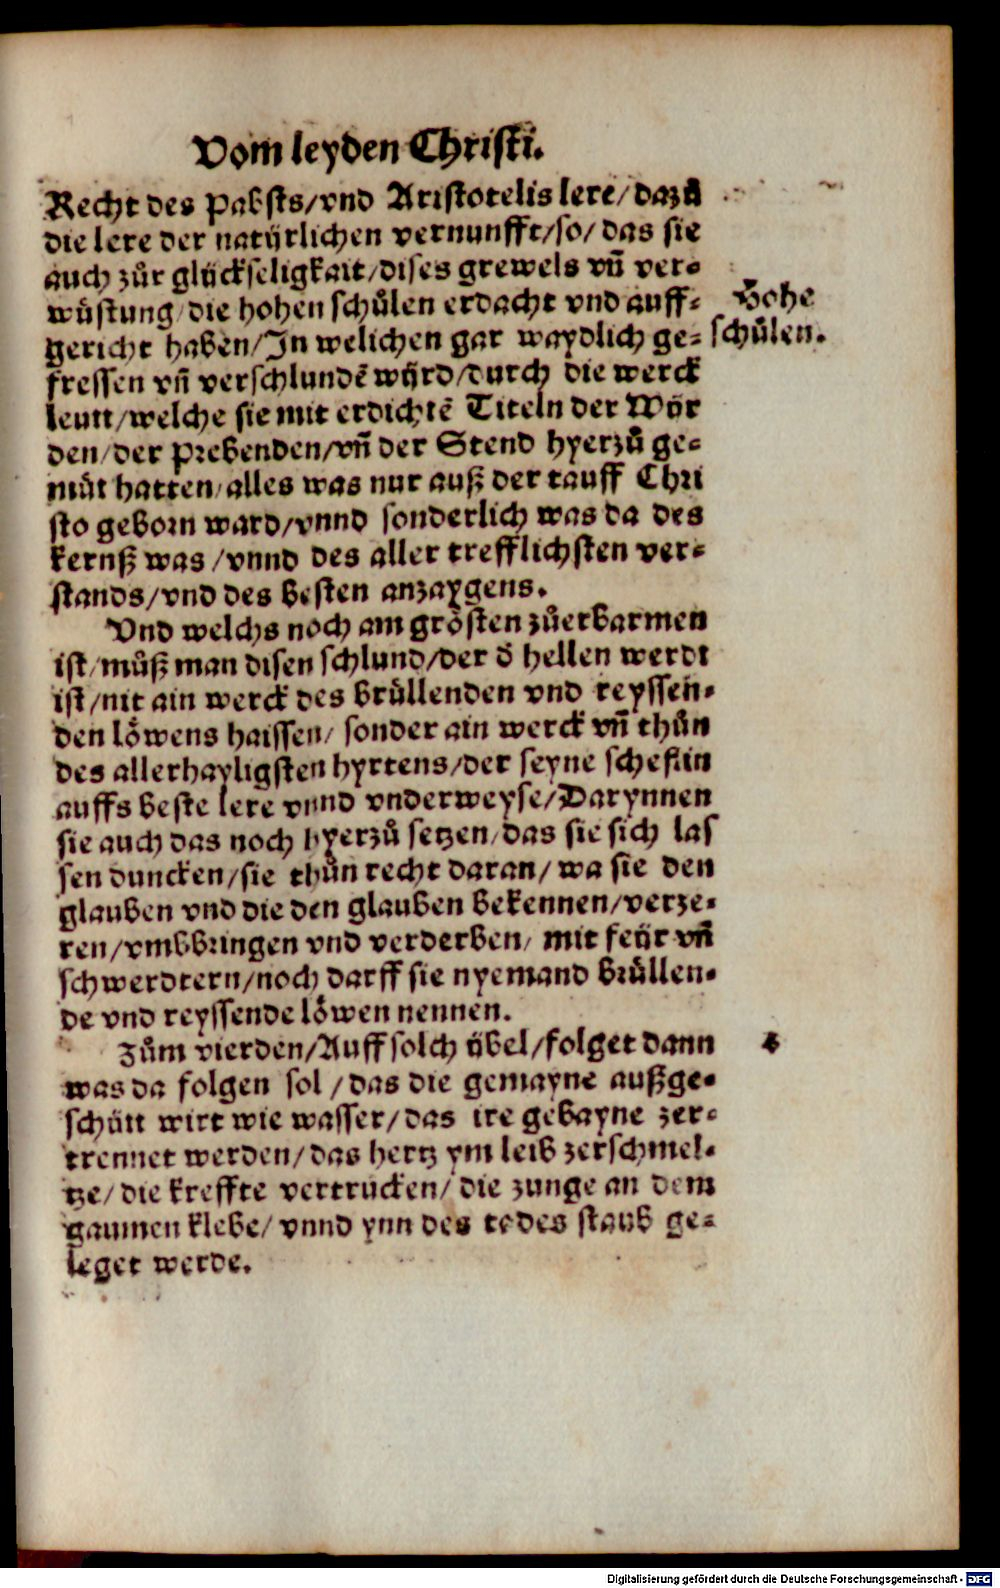 Vom leyden Christi.
Recht des Pabsts/vnd Aristotelis lere/dazů
die lere der natüͤrlichen vernunfft/so/das sie
auch zůr glückseligkait/dises grewels vñ ver-
wüstung/die hohen schůlen erdacht vnd auff-
Hohe
gericht haben/In welichen gar waydlich ge-
schůlen.
fressen vñ verschlundẽ wyrd/durch die werck
leutt/welche sie mit erdichtẽ Titeln der Wyr
den/der Prebenden/vñ der Stend hyerzů ge-
müt hatten/alles was nur auß der tauff Chri
sto geborn ward/vnnd sonderlich was da des
kernß was/vnnd des aller trefflichsten ver-
stands/vnd des besten anzaygens.
Vnd welchs noch am gröͤsten zůerbarmen
ist/můß man disen schlund/der d̄ hellen werdt
ist/nit ain werck des brüllenden vnd reyssen-
den löͤwens haissen/sonder ain werck vñ thůn
des allerhayligsten hyrtens/der seyne scheflin
auffs beste lere vnnd vnderweyse/Darynnen
sie auch das noch hyerzů setzen/das sie sich las
sen duncken/sie thůn recht daran/wa sie den
glauben vnd die den glauben bekennen/verze-
ren/vmbbringen vnd verderben/mit feür vñ
schwerdtern/noch darff sie nyemand brüllen-
de vnd reyssende löͤwen nennen.
Zům vierden/Auff solch ÿbel/folget dann
4
was da folgen sol/das die gemayne außge-
schütt wirt wie wasser/das ire gebayne zer-
trennet werden/das hertz ym leib zerschmel-
tze/die kreffte vertrucken/die zunge an dem
gaumen klebe/vnnd ynn des todes staub ge-
leget werde.
Digitalisierung gefördert durch die Deutsche Forschungsgemeinschaft - DFG